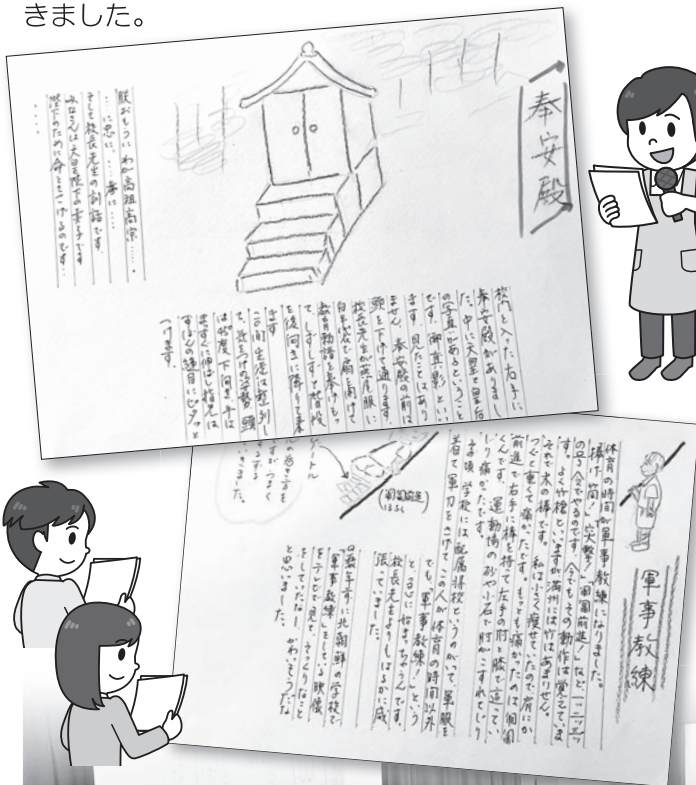 きました。
奉安殿
校門を入った右手に
奉安殿がありまし
た。中に天皇と皇后
の写真があるということ
です。「御真影」といい
ます。見たことはあり
ません。奉安殿の前は
頭を下げて通ります。
校長先生が燕尾服に
白手袋で扉を開けて
教育勅語を奉けもっ
て、しずしずと階段
を後向きに降りて来
ます
この間生徒は整列し
て、気をつけの姿勢、頭
は45度下向き、手は
まっすぐに伸ばし指先は
ずぼんの縫目にピタッと
つけます。
朕おもうに わが高祖高宗……
…に忠に、……孝に……
そして校長先生の訓話です。
みなさんは天皇陛下の赤子です
陛下のために命をささげるのです…
軍事教練
体育の時間が軍事教練になりました。
「捧げ、筒!」「突撃!」「匍匐前進!」など、一二三ッ
の号令でやるのです。今でもその動作は覚えていま
す。よく竹槍といいますが満州には竹はありません。
それで木の棒です。私はいちばん瘦せていたので肩にか
つぐと重くて痛かったです。もっとも痛かったのは「匍匐
前進」で右手に棒を持って左手の肘と膝で這ってい
くんです。運動場の砂や小石で肘がこすれてヒリ
ヒリ痛かったです。
その頃、学校には配属将校というのがいて、軍服を
着て軍刀をさげて、この人が体育の時間以外
でも「軍事教練!」という
と、急に始まっちゃうんです。
校長先生よりもはるかに威
張っていました。
数年前に北朝鮮の学校で
「軍事教練」をしている映像
をテレビで見て、そっくりなこと
をしていたなー、かわいそうだな
と思いました。
(匍匐前進
ほふく)